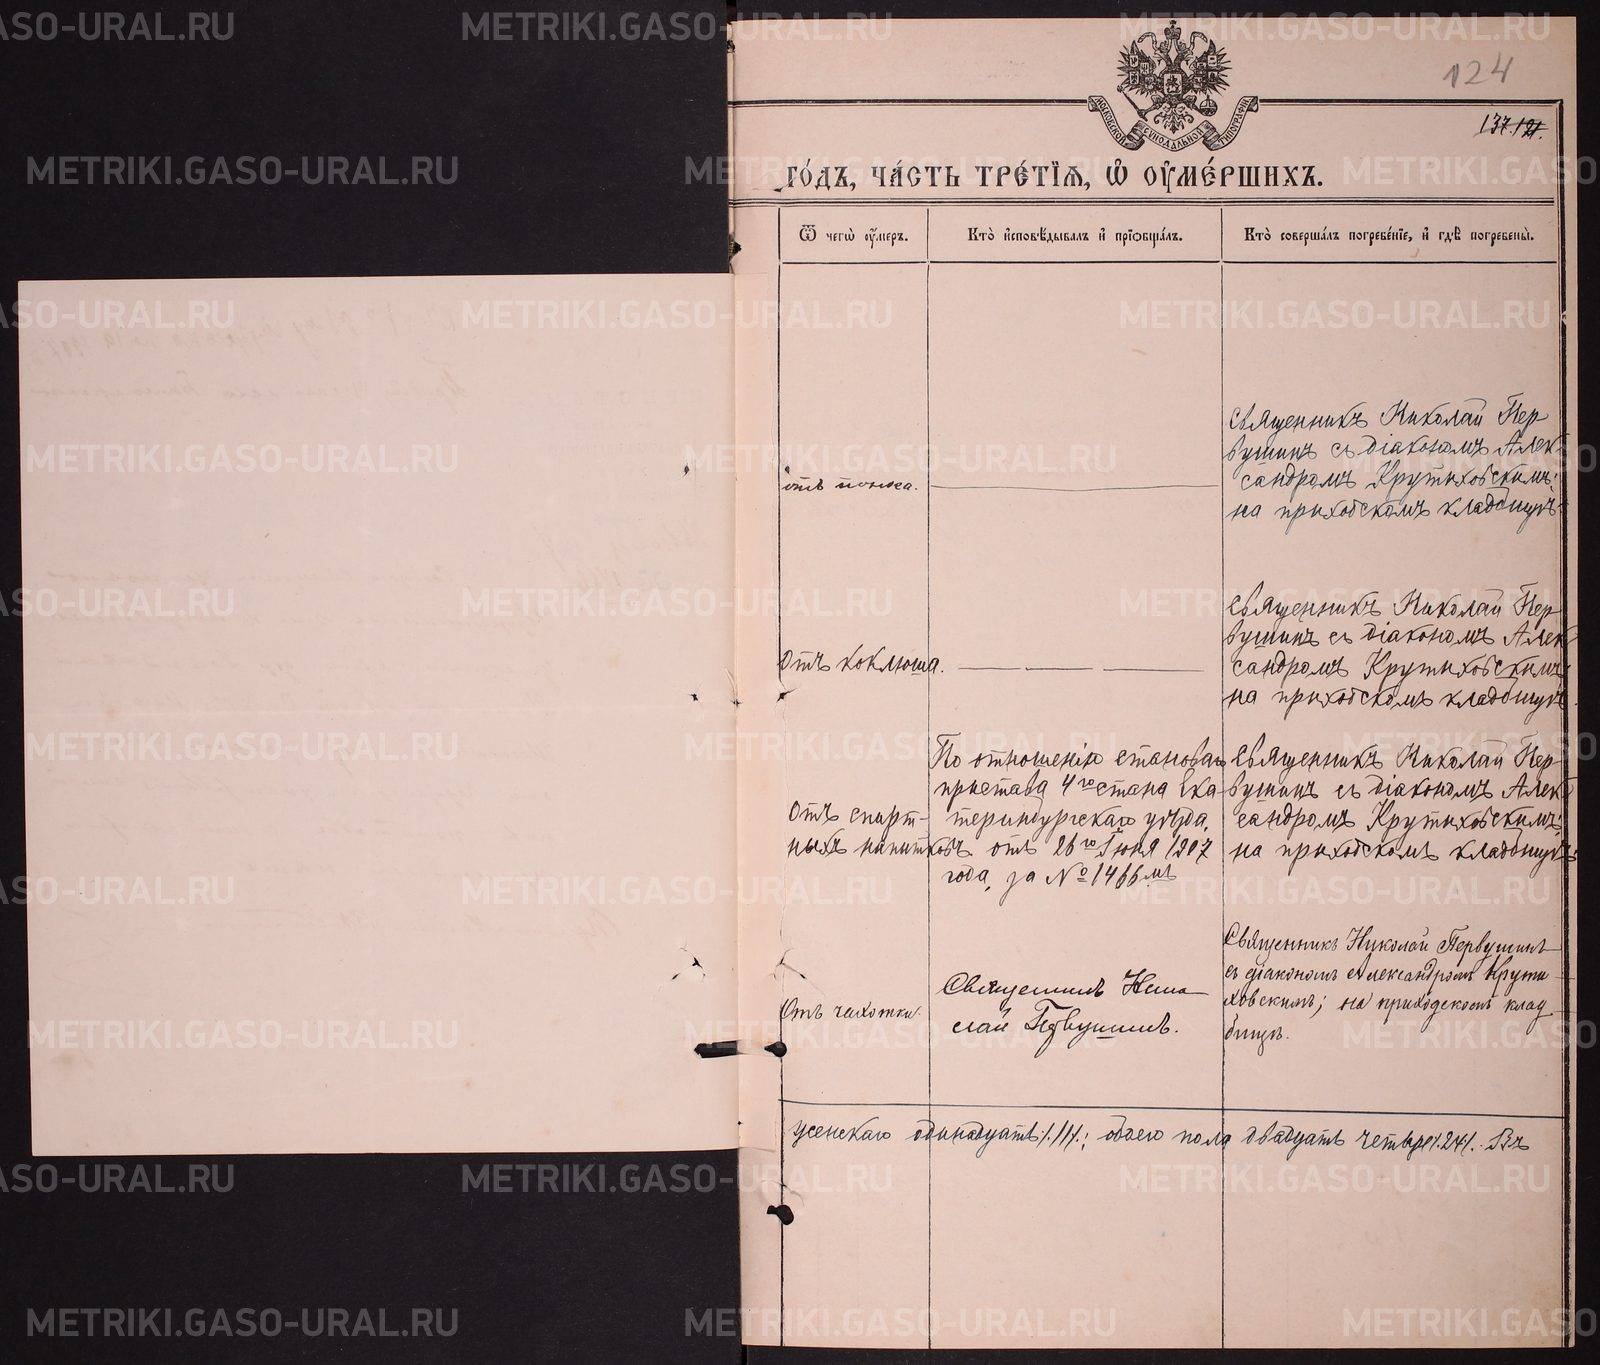 124
МОСКОВСКОЙ СѴНОДАЛЬНОЙ ТИПОГРАФІИ
137. 121.
ГО́ДЪ, ЧА́СТЬ ТРЕ́ТІѦ, Ѡ ОУ҆МЕ́РШИХЪ.
Ѿ чегѡ̀ оу҆́меръ.
Кто̀ и҆сповѣ́дывалъ и҆ прїѻбща́лъ.
Кто̀ соверша́лъ погребе́нїе, и҆ гдѣ̀ погребены̀.
отъ поноса.
Священникъ Николай Пер
вушинъ съ діакономъ Алек
сандромъ Крутиховскимъ;
на приходскомъ кладбищѣ.
Отъ коклюша.
Священникъ Николай Пер
вушинъ съ діакономъ Алек
сандромъ Крутиховскимъ
на приходскомъ кладбищѣ.
Отъ спирт-
ныхъ напитковъ
По отношенію становаго
пристава 4го стана Ека
теринбургскаго уѣзда,
отъ 26го Іюня 1907
года, за № 1466мъ
Священникъ Николай Пер
вушинъ съ діакономъ Алек
сандромъ Крутиховскимъ;
на приходскомъ кладбищѣ.
Отъ чахотки.
Священникъ Нико
лай Первушинъ.
Священникъ Николай Первушинъ
съ діакономъ Александромъ Крути
ховскимъ; на приходскомъ клад
бищѣ.
женскаго одинадцать /.11/.; обоего пола двадцать четыре /.24/. Въ
METRIKI.GASO-URAL.RU